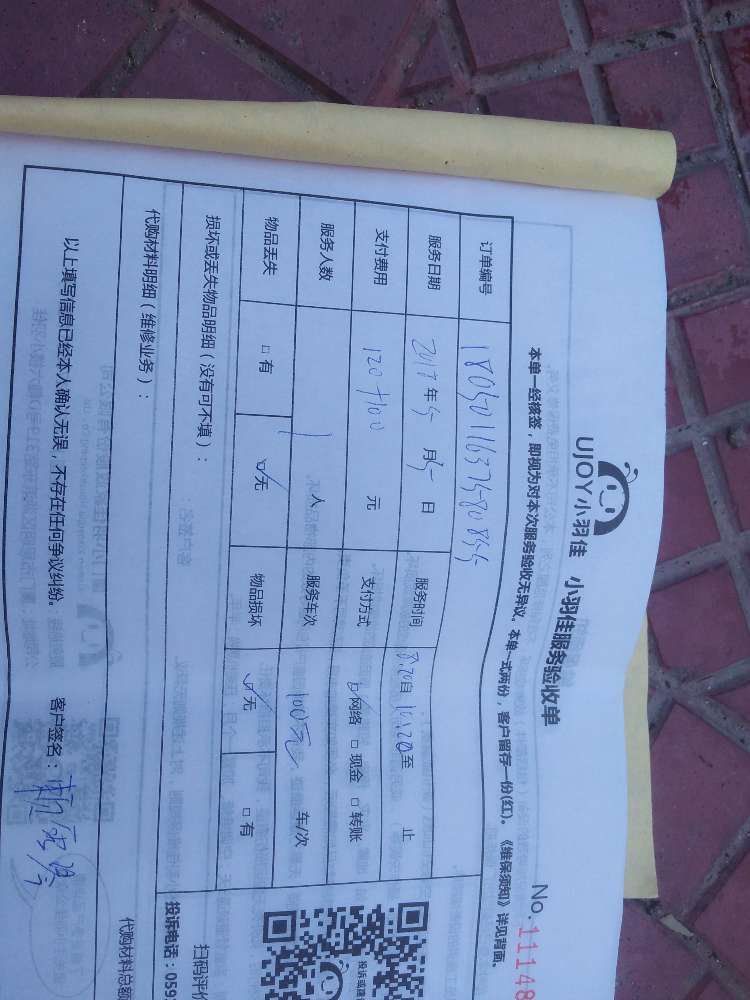 UJOY小羽佳 小羽佳服务验收单
No.11148
本单一经核签，即视为对本次服务验收无异议。本单一式两份，客户留存一份(红)。《维保须知》详见背面。
订单编号
服务日期 年5月5日 服务时间 8:20自10:20至 止
支付费用 120+100 元 支付方式 ☑网络 □现金 □转账
服务人数 1 人 服务车次 100元 车/次
物品丢失 □有 ☑无 物品损坏 ☑无 □有
损坏或丢失物品明细（没有可不填）：
代购材料明细（维修业务）：
代购材料总额
以上填写信息已经本人确认无误，不存在任何争议纠纷。 客户签名：
扫码评价
投诉电话：059
投诉或建